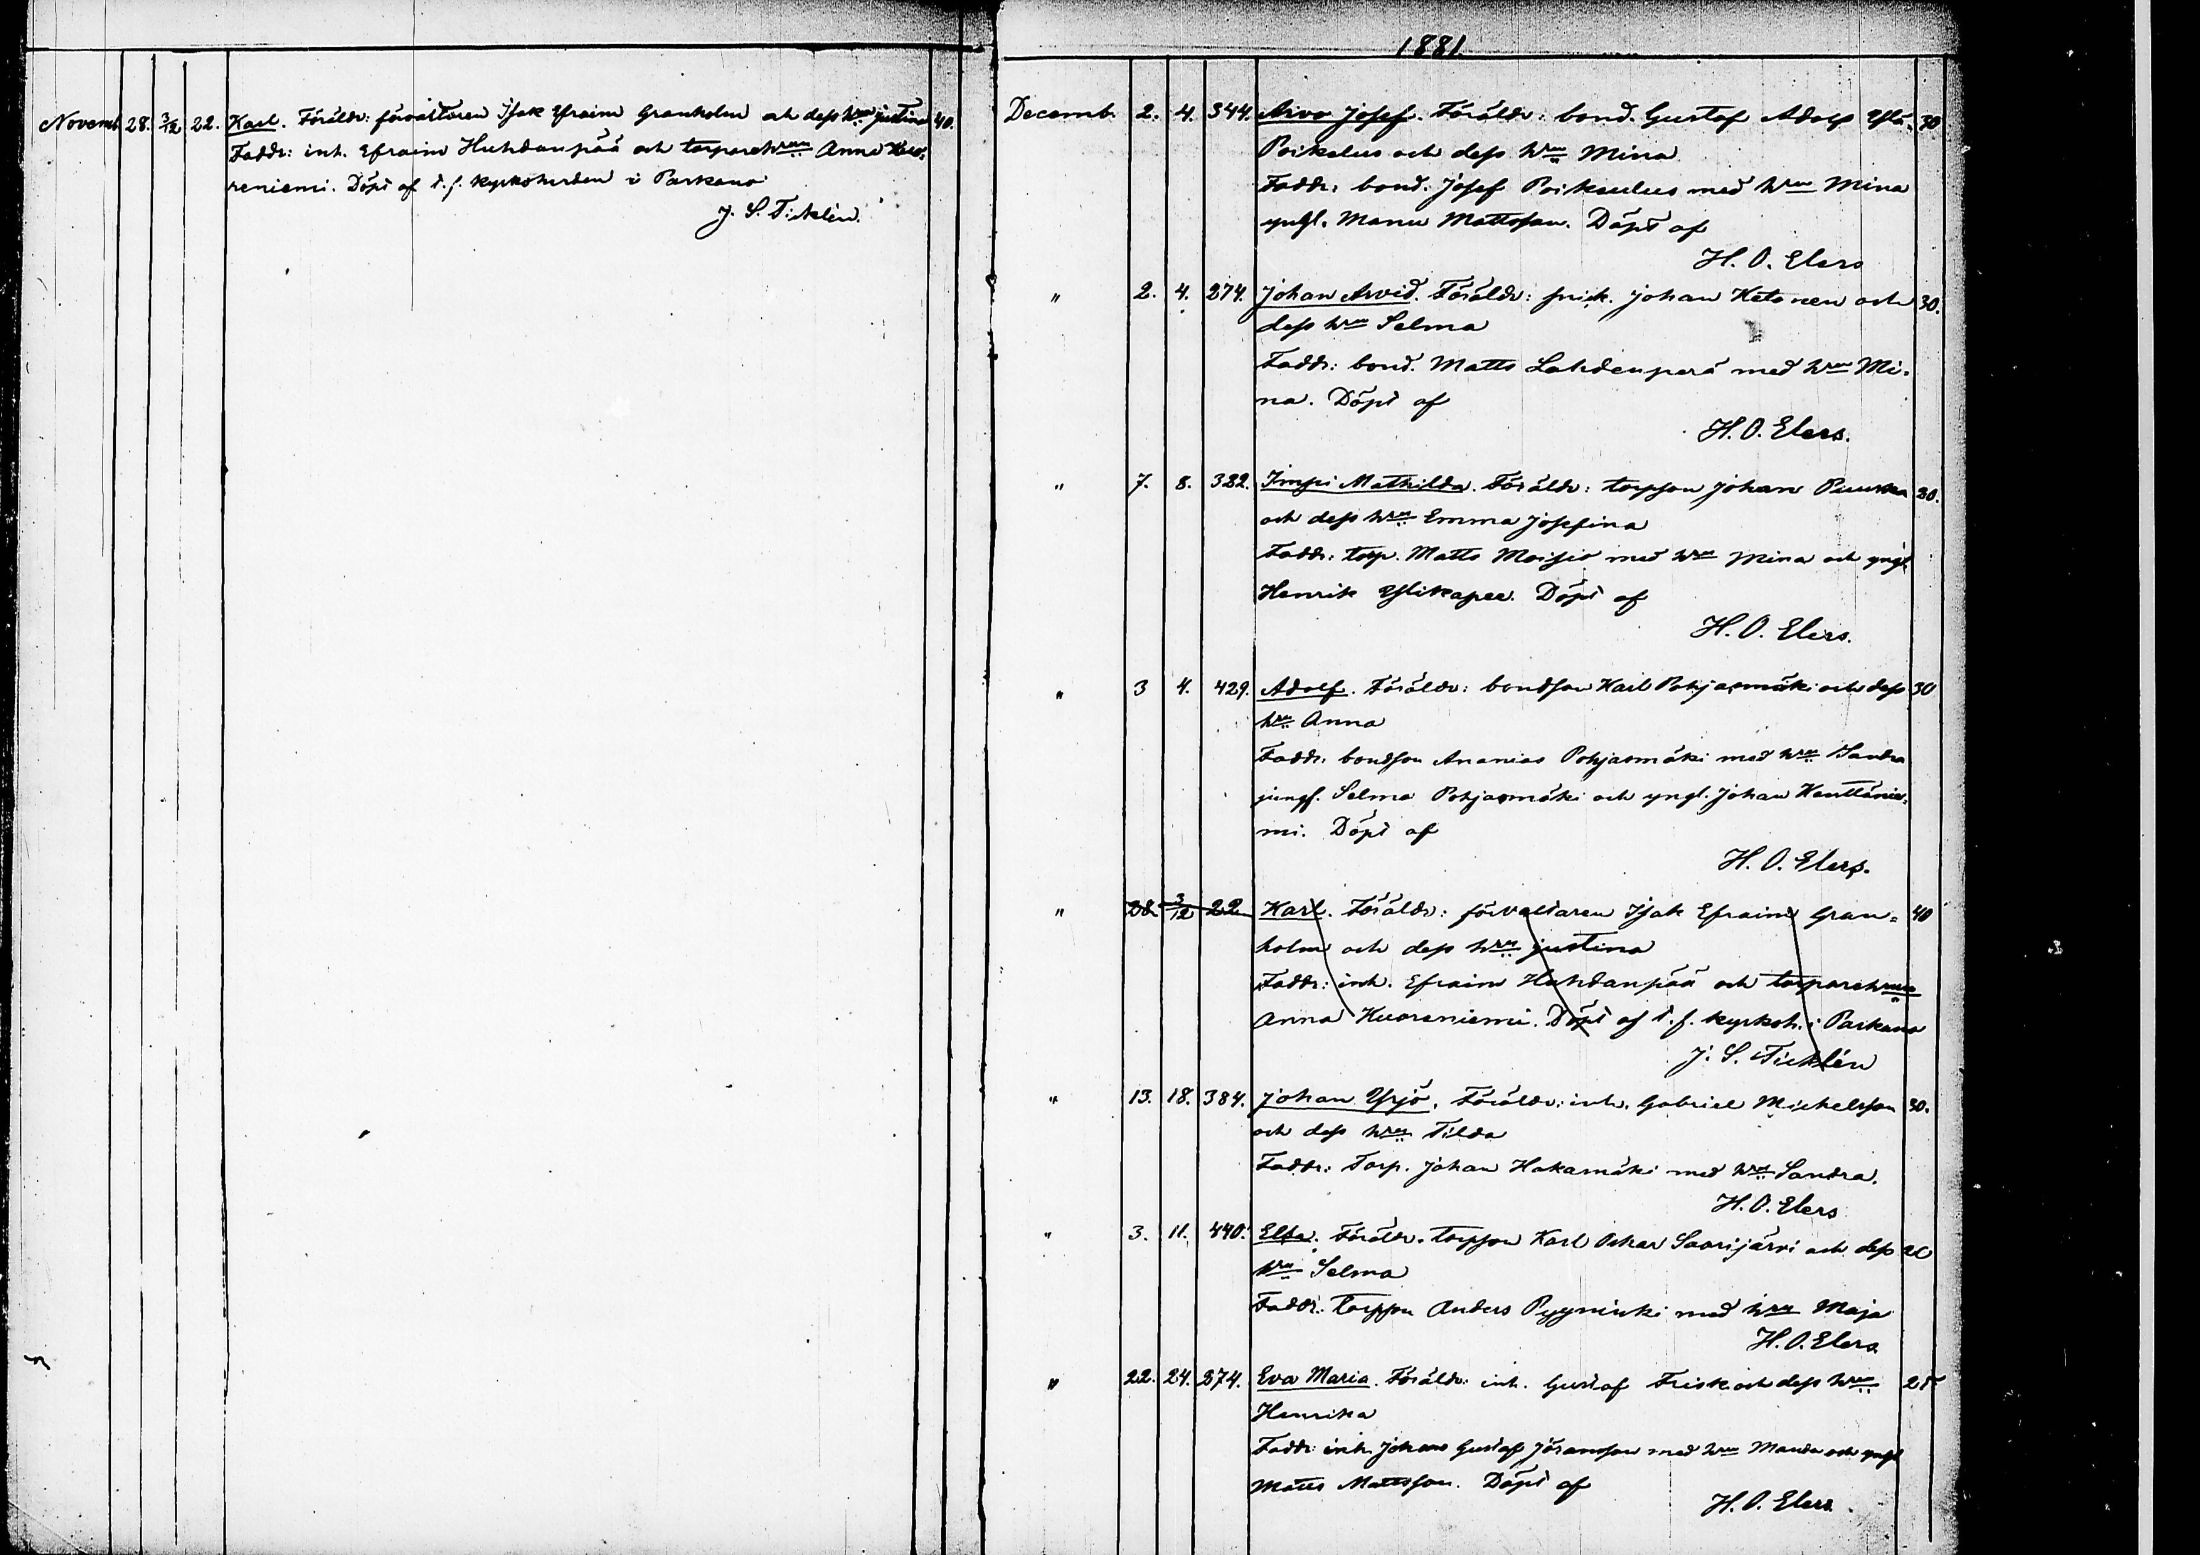 Novemb. 28. 3/12 22. Karl. Föräldr: förvaltaren Isak Efraim Granholm och dess hru Justina 40.
Faddr: inh. Efraim Huhdanpää och torparehrun Anna Kuo-
reniemi. Döpt af t. f. kyrkoherden i Parkano
J. S. Ticklén.
1881.
Decemb. 2. 4. 344. Arvo Josef. Föräldr: bond. Gustaf Adolf Yli- 30
Poikelus och dess hru Mina
Faddr: bond. Josef Poikeulus med hru Mina
yngl. Manu Mattsson. Döpt af
H. O. Elers
" 2. 4. 274. Johan Arvid. Föräldr: Johan Ketonen och 30.
dess hru Selma
Faddr: bond. Matts Lahdenperä med hru Mi-
na. Döpt af
H. O. Elers.
" 7. 8. 322. Impi Mathilda. Föräldr: torpson Johan 20.
och dess hru Emma Josefina
Faddr: torp. Matts Moisio med hru Mina och yngl
Henrik Ylikapee. Döpt af
H. O. Elers.
" 3 4. 429. Adolf. Föräldr: bondson Karl Pohjasmäki och dess 30
hru Anna
Faddr: bondson Ananias Pohjasmäki med hru Sandra
jungf. Selma Pohjasmäki och yngl. Johan Kauttänie-
mi. Döpt af
H. O. Elers.
" 28. 3/12 22 Karl. Föräldr: förvaltaren Isak Efraim Gran- 40
holm och dess hru Justina
Faddr: inh. Efraim Huhdanpää och torparehrun
Anna Kuoreniemi. Döpt af t. f. kyrkoh. i Parkano
J. S. Ticklén
" 13. 18. 384. Johan Yrjö. Föräldr: inh. Gabriel Michelsson 30.
och dess hru Tilda
Faddr: Torp. Johan Hakamäki med hru Sandra.
H. O. Elers
" 3. 11. 440. Elsa. Föräldr. torpson Karl Oskar Saarijärvi och dess
hru Selma
Faddr. torpson Anders Pyynikki med hru Maja
H. O. Elers
" 22. 24. 274. Eva Maria. Föräldr: inh. Gustaf Frisk och dess hru 25
Henrika
Faddr: inh. Johans Gustaf Göransson med hru Manda och yngl
Matts Mattsson. Döpt af
H. O. Elers.